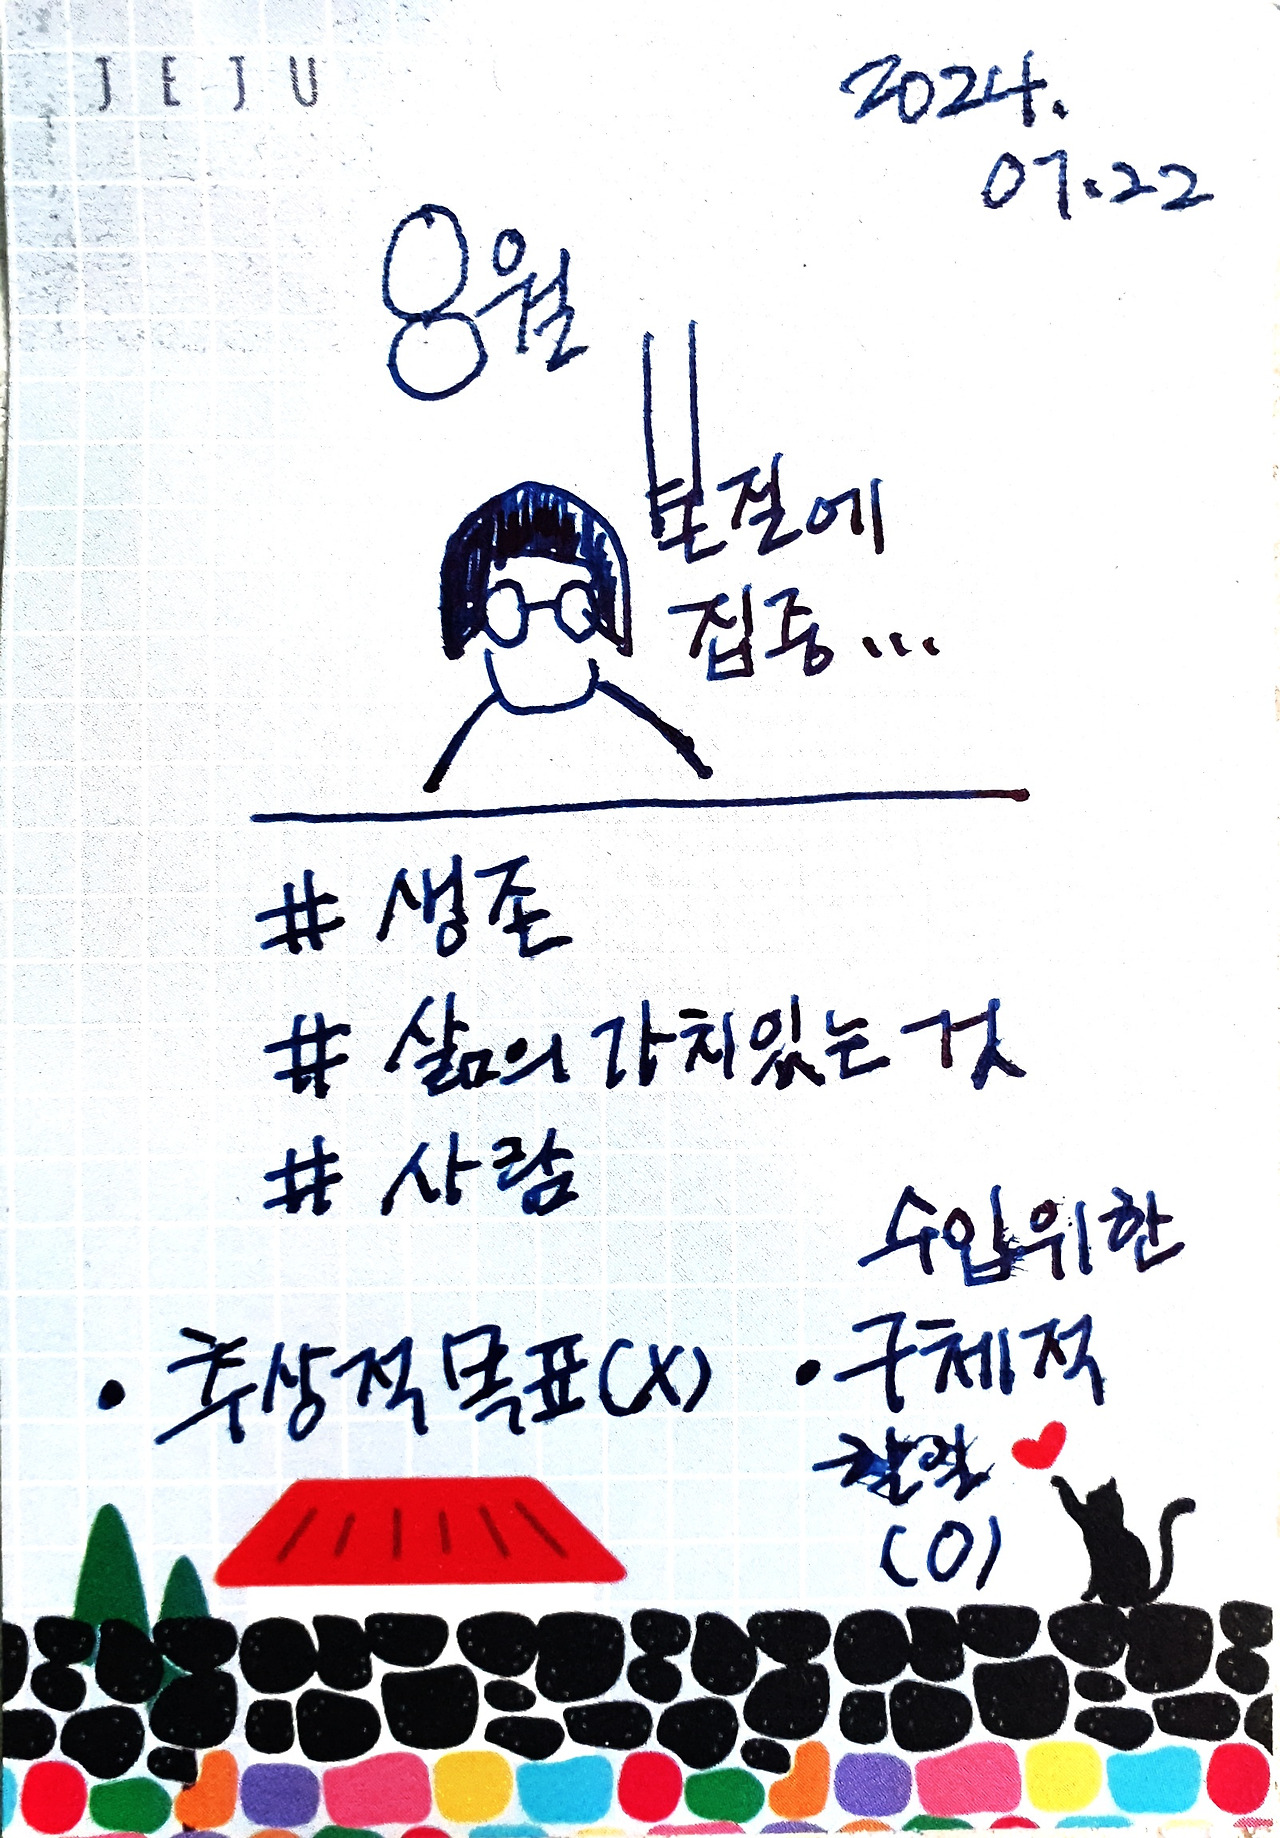 JEJU
2024.
07.22
8월
본질에
집중...
# 생존
# 삶의 가치있는 것
# 사람
• 추상적 목표(X)
수입위한
• 구체적
할일
(O)